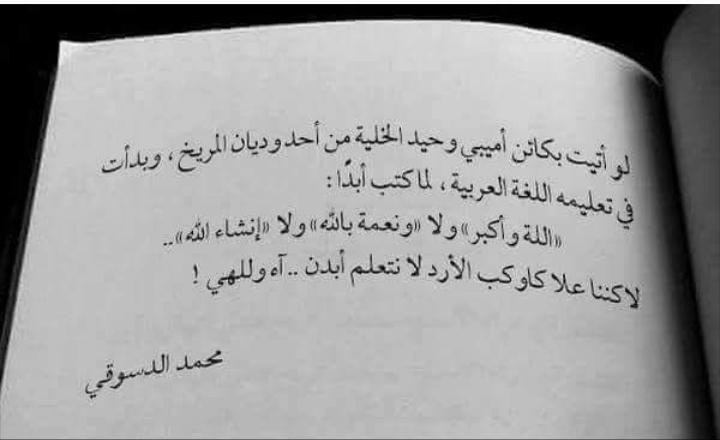 لو أتيت بكائن أميبي وحيد الخلية من أحد وديان المريخ، وبدأت
في تعليمه اللغة العربية، لما كتب أبدًا:
«اللة وأكبر» ولا «ونعمة بالله» ولا «إنشاء الله»..
لاكننا علا كاوكب الأرد لا نتعلم أبدن .. آه وللهي !
محمد الدسوقي